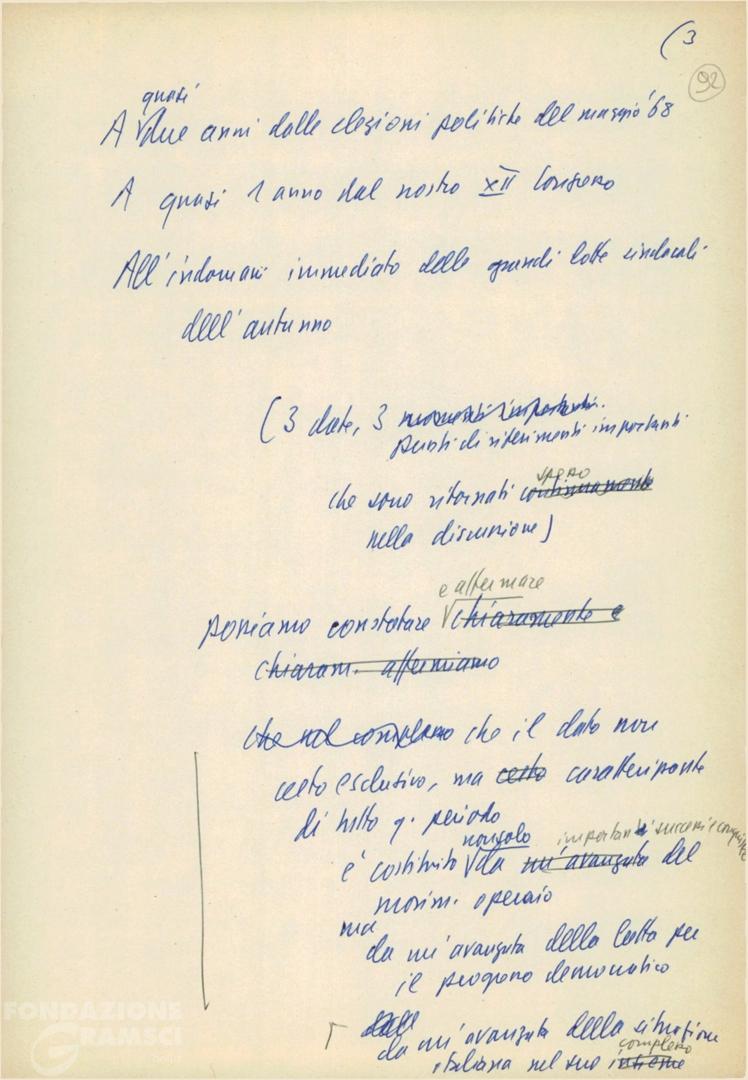 (3
92
quasi
A due anni dalle elezioni politiche del maggio '68
A quasi 1 anno dal nostro XII Congresso
All'indomani immediato delle grandi lotte sindacali
dell'autunno
(3 date, 3 momenti importanti.
punti di riferimenti importanti
spesso
che sono ritornati continuamente
nella discussione)
e affermare
possiamo constatare chiaramente e
chiaram. affermiamo
che nel complesso che il dato non
certo esclusivo, ma certo caratterizzante
di tutto q. periodo
nonsolo importanti successi e conquiste
è costituito da un'avanzata del
movim. operaio
ma
da un'avanzata della lotta per
il progresso democratico
dalla
da un'avanzata della situazione
complesso
italiana nel suo insieme
FONDAZIONE
GRAMSCI